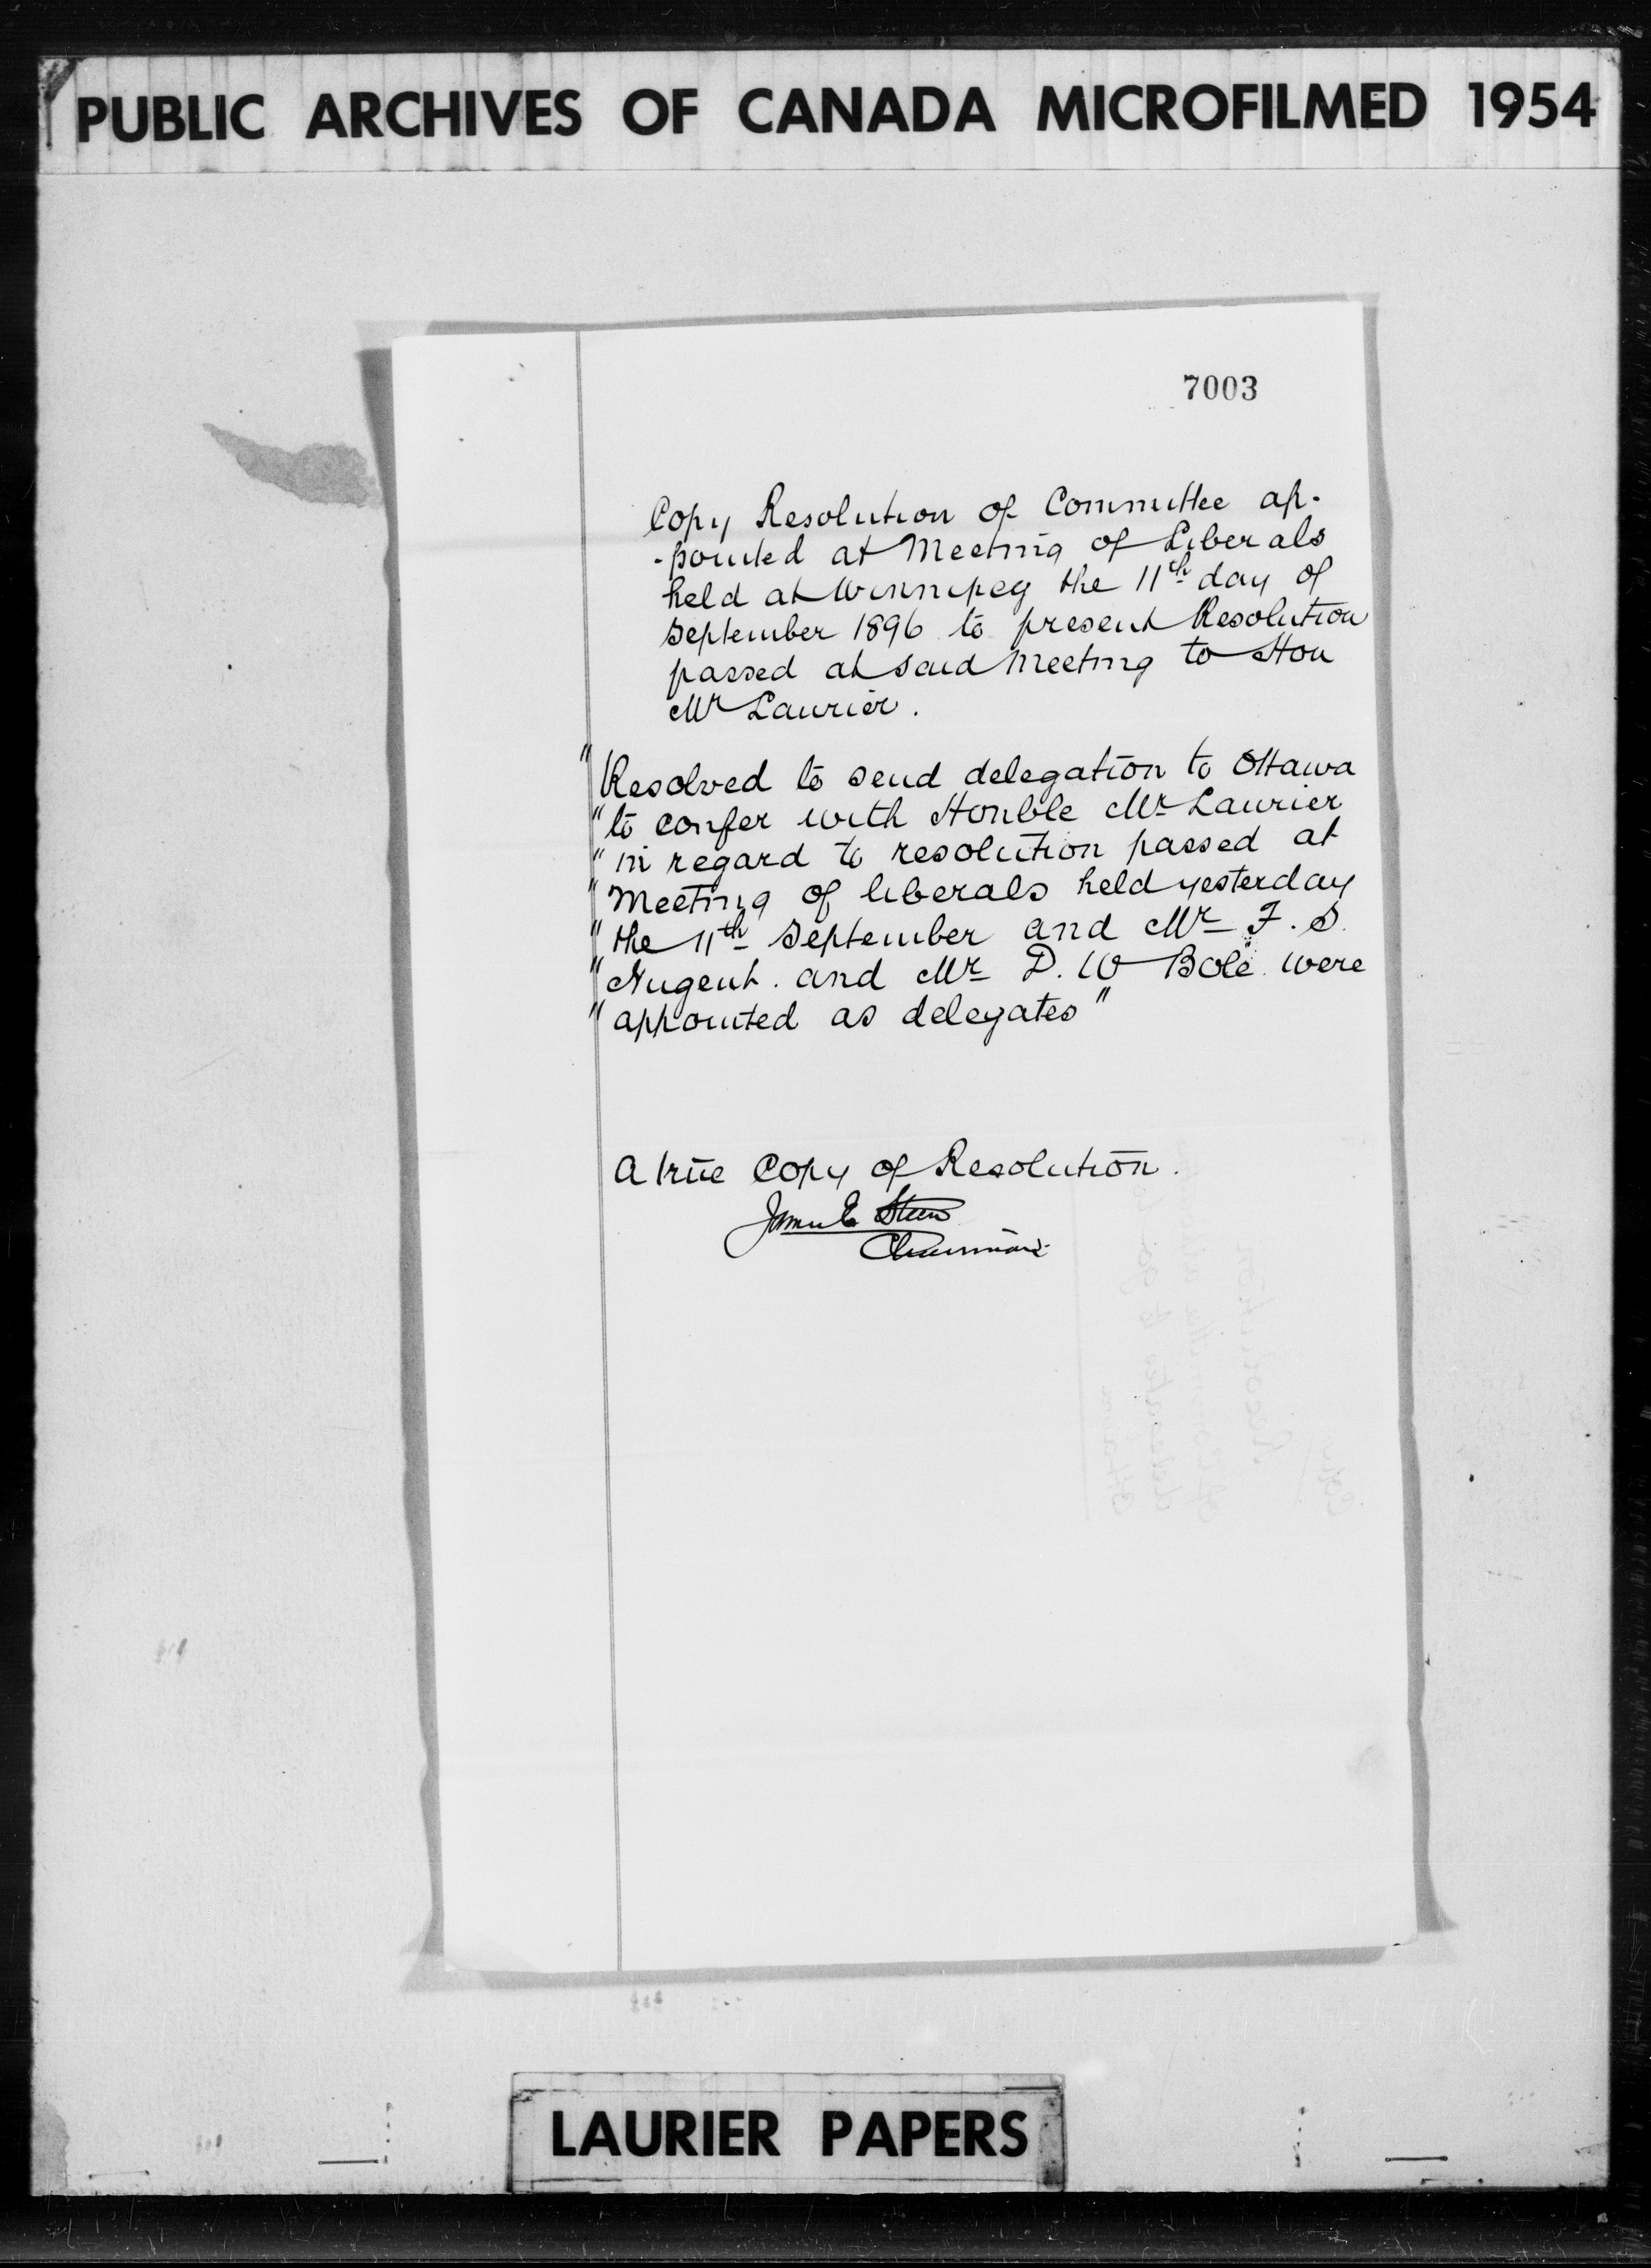 PUBLIC ARCHIVES OF CANADA MICROFILMED 1954
7003
Copy Resolution of Committee ap-
-pointed at Meeting of Liberals
held at Winnipeg the 11th day of
September 1896 to present Resolution
passed at said Meeting to Hon
Mr Laurier.
"Resolved to send delegation to Ottawa
"to confer with Honble Mr Laurier
"in regard to resolution passed at
"Meeting of liberals held yesterday
"the 11th September and Mr F. S.
"Nugent. and Mr D. W Bole were
"appointed as delegates"
A true Copy of Resolution.
James E Steen
Chairman
LAURIER PAPERS